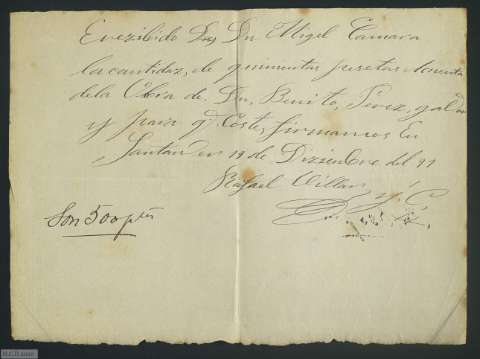 E rezibido De Dn Migel Camara
la cantidaz, de quinientas pesetas Acuenta
de la Obra de Dn, Benito, Perez, galdos
y para q Coste, firmamos En
Santander 19 de Diziembre del 91
Rafael Villar y Cª
Son 500 pts